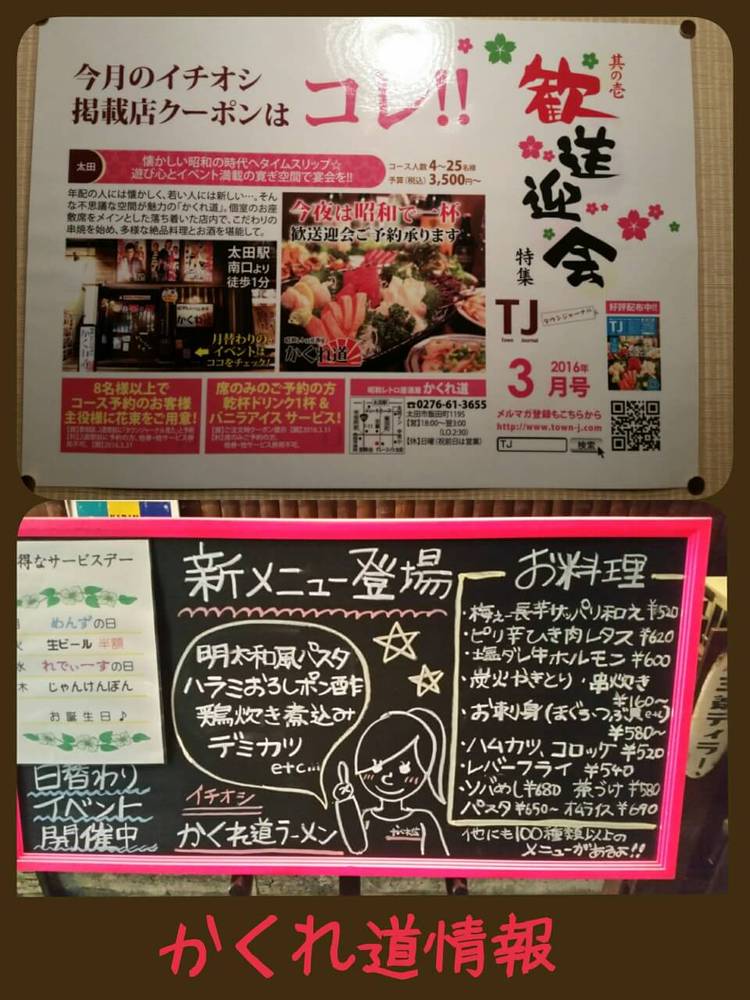 今月のイチオシ
掲載店クーポンは
コレ!!
其の壱
歓送迎会
特集
太田
懐かしい昭和の時代へタイムスリップ☆
遊び心とイベント満載の寛ぎ空間で宴会を!!
コース人数 4〜25名様
予算(税込) 3,500円〜
年配の人には懐かしく、若い人には新しい…。そん
な不思議な空間が魅力の「かくれ道」。個室のお座
敷席をメインとした落ち着いた店内で、こだわりの
串焼を始め、多様な絶品料理とお酒を堪能して。
太田駅
南口より
徒歩1分
月替わりの
イベントは
ココをチェック!
今夜は昭和で一杯
歓送迎会ご予約承ります
かくれ道
TJ
Town Journal
タウンジャーナル
好評配布中!!
TJ
2016年
3月号
8名様以上で
コース予約のお客様
主役様に花束をご用意!
席のみのご予約の方
乾杯ドリンク1杯&
バニラアイスサービス!
昭和レトロ居酒屋 かくれ道
☎0276-61-3655
太田市飯田町1195
【営】18:00〜翌3:00
(L.O.2:30)
【休】日曜(祝前日は営業)
メルマガ登録もこちらから
http://www.town-j.com
TJ 検索
得なサービスデー
めんずの日
生ビール 半額
水 れでぃーすの日
木 じゃんけんぽん
お誕生日♪
日替わり
イベント
開催中
新メニュー登場
明太和風パスタ
ハラミおろしポン酢
鶏炊き煮込み
デミカツ
etc...
イチオシ
かくれ道ラーメン
お料理
・梅ぇ〜長芋サッパリ和え ¥520
・ピリ辛ひき肉レタス ¥620
・塩ダレ牛ホルモン ¥600
・炭火やきとり・串焼き
¥160〜
・お刺身(まぐろ・つぶ貝etc)
¥580〜
・ハムカツ、コロッケ ¥520
・レバーフライ ¥540
・ソバめし ¥680 茶づけ ¥580
パスタ ¥650〜 オムライス ¥690
他にも100種類以上の
メニューがあるよ!!
かくれ道情報